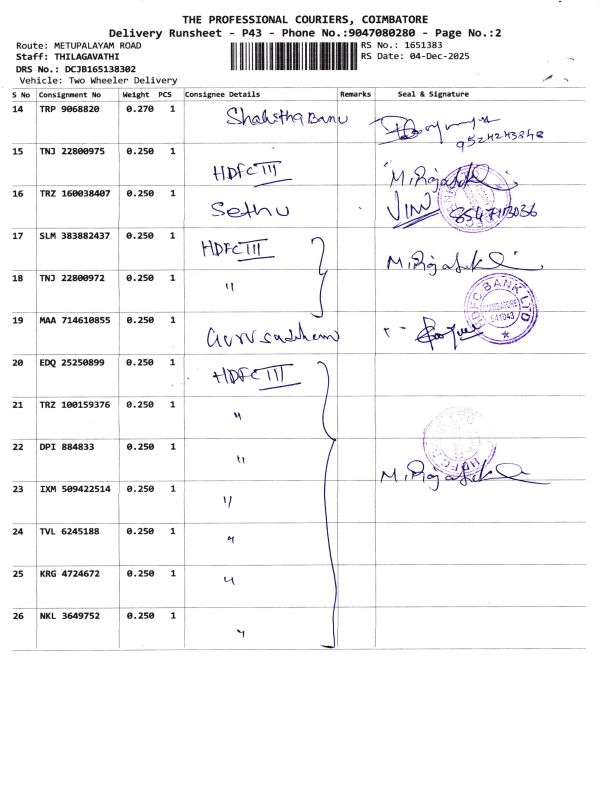 THE PROFESSIONAL COURIERS, COIMBATORE
Delivery Runsheet - P43 - Phone No.:9047080280 - Page No.:2
Route: METUPALAYAM ROAD RS No.: 1651383
Staff: THILAGAVATHI RS Date: 04-Dec-2025
DRS No.: DCJB165138302
Vehicle: Two Wheeler Delivery
S No Consignment No Weight PCS Consignee Details Remarks Seal & Signature
14 TRP 9068820 0.270 1 Shahitha Banu
9524243848
15 TNJ 22800975 0.250 1 HDFC III M. Rojaselvi
16 TRZ 160038407 0.250 1 Sethu
17 SLM 383882437 0.250 1 HDFC III
18 TNJ 22800972 0.250 1 "
HDFC BANK LTD
641043
19 MAA 714610855 0.250 1
20 EDQ 25250899 0.250 1 HDFC III
21 TRZ 100159376 0.250 1 "
22 DPI 884833 0.250 1 "
23 IXM 509422514 0.250 1 "
24 TVL 6245188 0.250 1 "
25 KRG 4724672 0.250 1 "
26 NKL 3649752 0.250 1 "